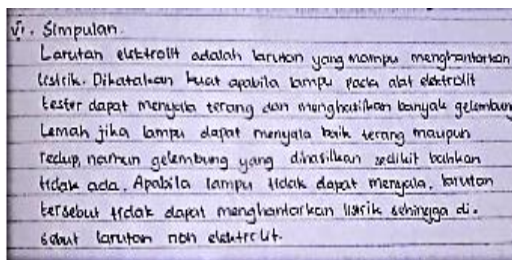 VI. Simpulan.
Larutan elektrolit adalah larutan yang mampu menghantarkan
listrik. Dikatakan kuat apabila lampu pada alat elektrolit
tester dapat menyala terang dan menghasilkan banyak gelembung
Lemah jika lampu dapat menyala baik terang maupun
redup, namun gelembung yang dihasilkan sedikit bahkan
tidak ada. Apabila lampu tidak dapat menyala, larutan
tersebut tidak dapat menghantarkan listrik sehingga di-
sebut larutan non elektrolit.